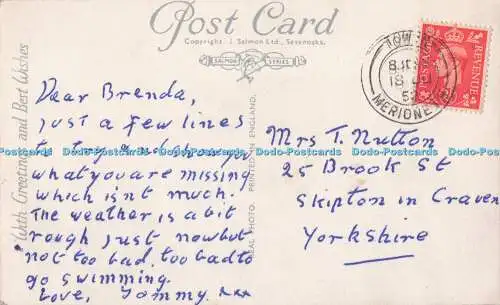 Post Card
Copyright. J Salmon Ltd., Sevenoaks.
SALMON SERIES
With Greetings and Best Wishes
REAL PHOTO. PRINTED IN ENGLAND.
TOW
MERIONE
REVENUE
Dear Brenda,
just a few lines
to try and show you
what you are missing
which isnt much.
The weather is a bit
rough just now but
not too bad. too bad to
go swimming.
Love, Tommy xxx
Mrs T. Nutton
25 Brook St
Skipton in Craven
Yorkshire
Dodo-Postcards Dodo-Postcards Dodo-Postcards Dodo-Postcards